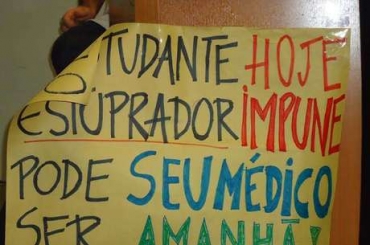 ESTUDANTE HOJE
ESTUPRADOR IMPUNE
PODE SEU MÉDICO
SER AMANHÃ!